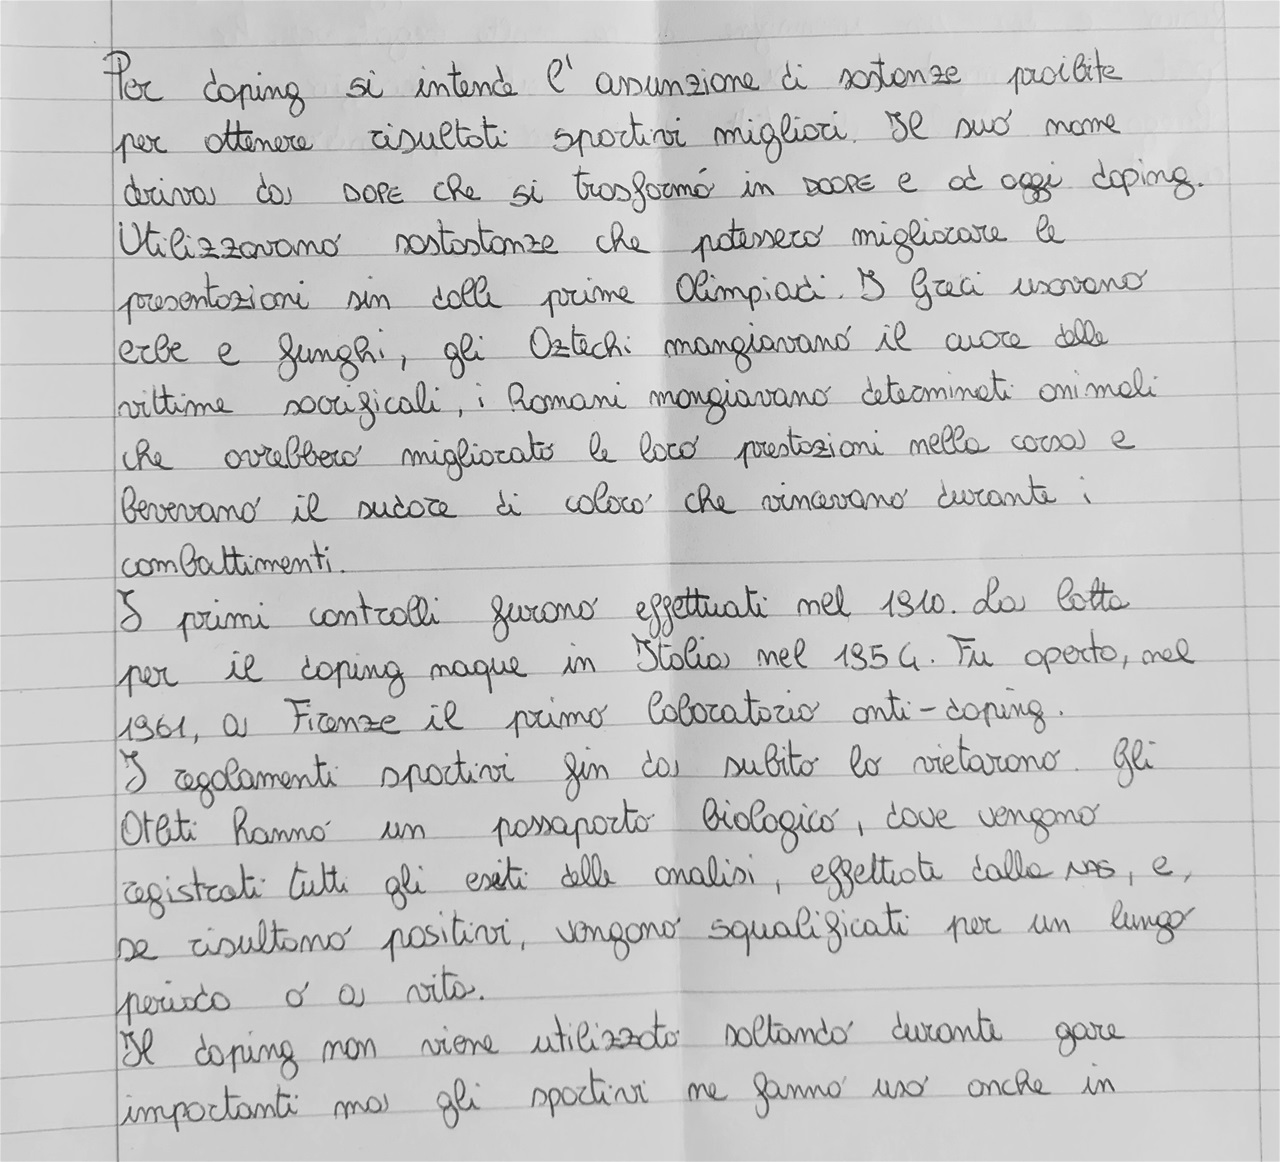 Per doping si intende l'assunzione di sostanze proibite
per ottenere risultati sportivi migliori. Il suo nome
deriva da DOPE che si trasformò in DOOPE e ad oggi doping.
Utilizzavano sostostanze che potessero migliorare le
presentazioni sin dalle prime Olimpiadi. I Greci usavano
erbe e funghi, gli Aztechi mangiavano il cuore delle
vittime sacrificali, i Romani mangiavano determinati animali
che avrebbero migliorato le loro prestazioni nella corsa e
bevevano il sudore di coloro che vincevano durante i
combattimenti.
I primi controlli furono effettuati nel 1910. La lotta
per il doping naque in Italia nel 1954. Fu aperto, nel
1961, a Firenze il primo laboratorio anti-doping.
I regolamenti sportivi fin da subito lo vietarono. Gli
Atleti hanno un passaporto biologico, dove vengono
registrati tutti gli esiti delle analisi, effettuate dalla NAS, e,
se risultano positivi, vengono squalificati per un lungo
periodo o a vita.
Il doping non viene utilizzato soltando durante gare
importanti ma gli sportivi ne fanno uso anche in